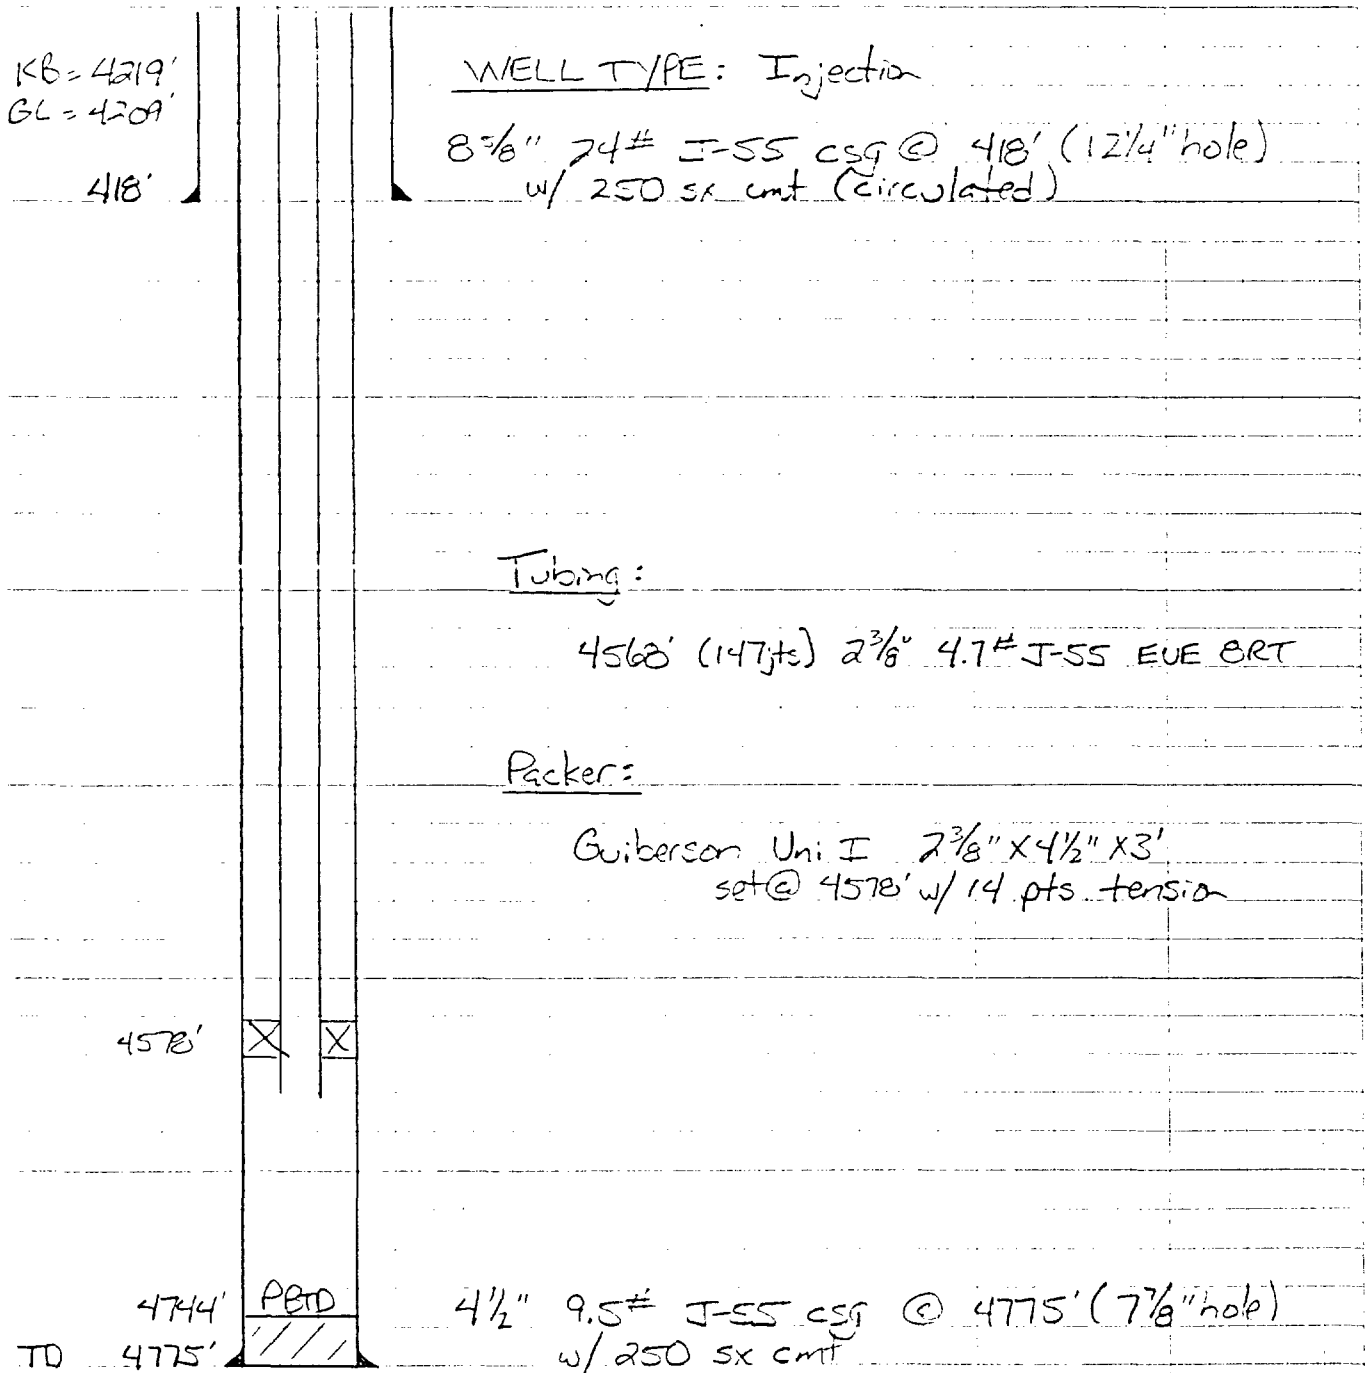 KB = 4219'
GL = 4209'
WELL TYPE: Injection
8 5/8" 24# J-55 csg @ 418' (12 1/4" hole)
w/ 250 sx cmt (circulated)
418'
Tubing:
4568' (147jts) 2 3/8" 4.7# J-55 EUE 8RT
Packer:
Guiberson Uni I 2 3/8" X 4 1/2" X 3'
set @ 4578' w/ 14 pts tension
4578'
4744' PBTD
4 1/2" 9.5# J-55 csg @ 4775' (7 7/8" hole)
w/ 250 sx cmt
TD 4775'